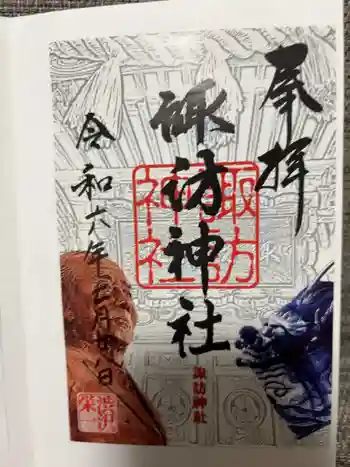 奉拝
諏訪神社
諏訪神社
諏訪神社
令和六年五月四日
渋沢栄一